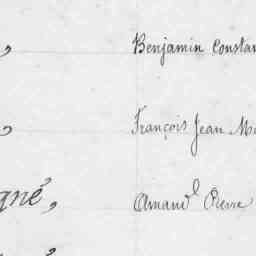 , Benjamin Constan
, François Jean M
gné, Amand Pierre